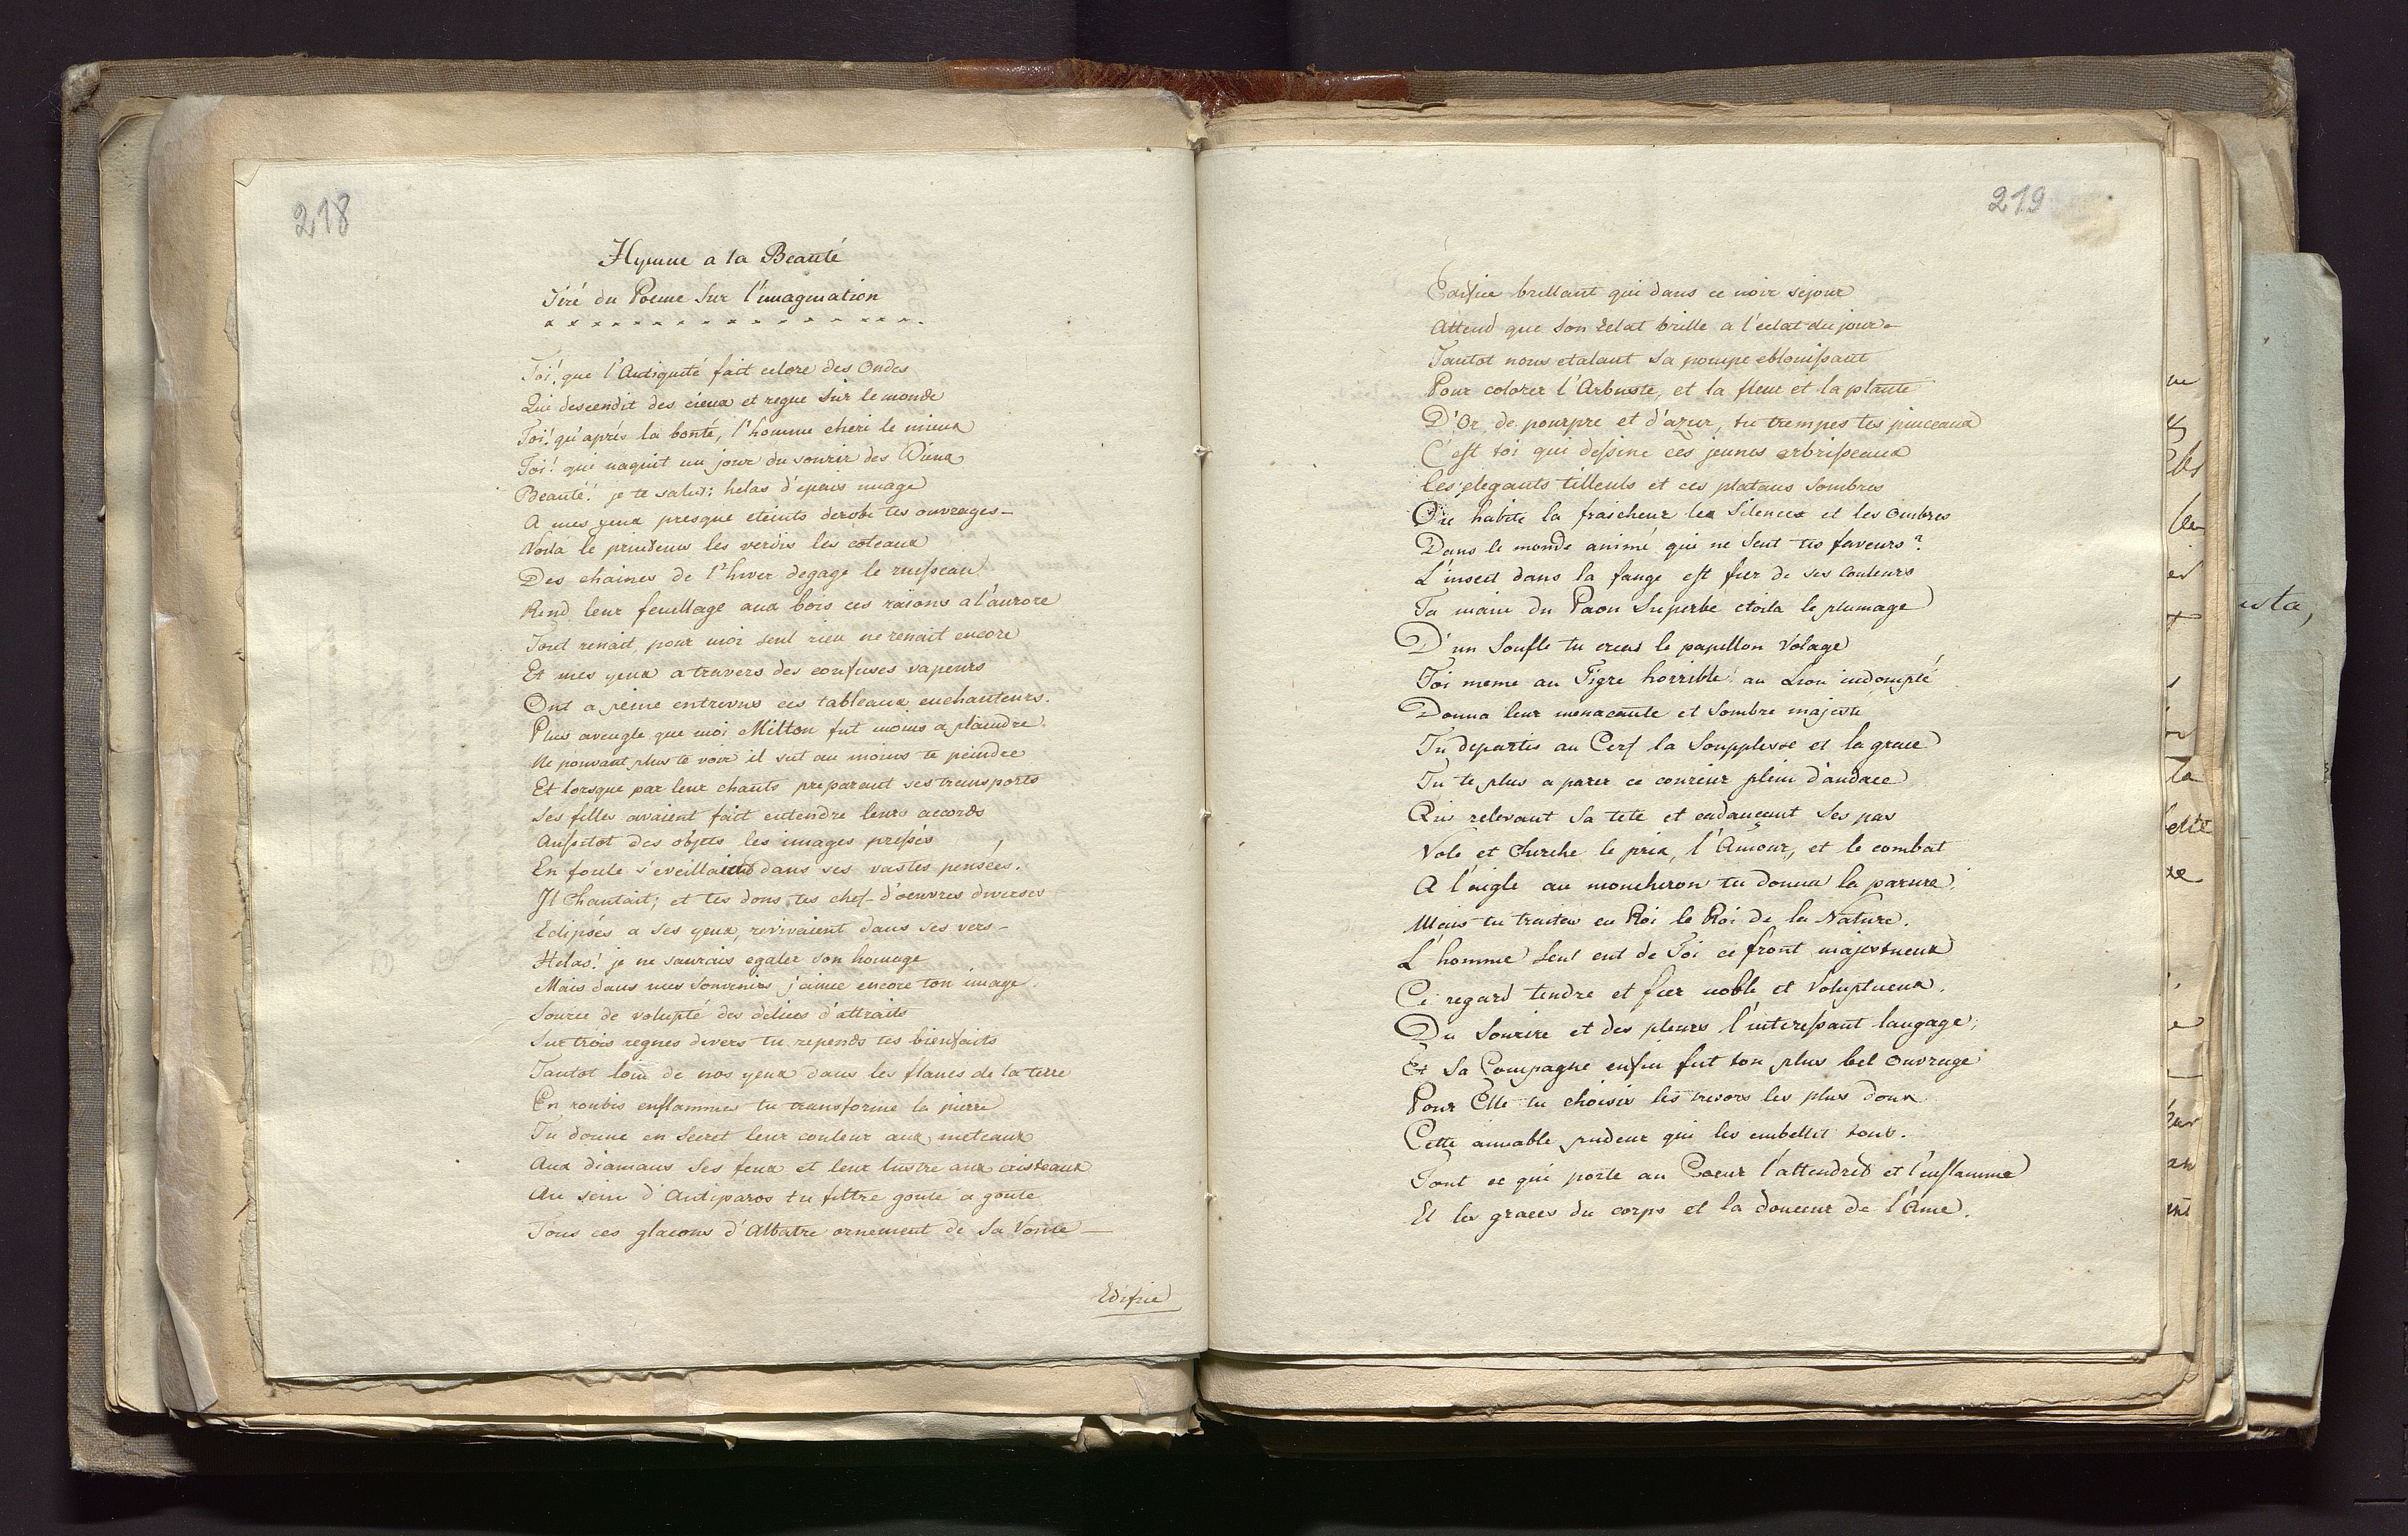 218
Hymne a la Beauté
Tiré du Poeme sur l'imagination
Toi! que l'Antiquité fait eclore des Ondes
Qui descendit des cieux et regne sur le monde
Toi! qu'aprés la bonté, l'homme cheri le mieux
Toi! qui naquit un jour du sourir des Dieux
Beauté! je te salue: helas d'epais nuage
A mes yeux presque eteints derobe tes ouvrages—
Voila le printems les verdis les coteaux
Des chaines de l'hiver degage le ruisseau
Rend leur feuillage aux bois ces raions a l'aurore
Tout renait, pour moi seul rien ne renait encore
Et mes yeux a travers des confuses vapeurs
Ont a peine entrevus ces tableaux enchanteurs.
Plus aveugle que moi Milton fut moins a plaindre.
Ne pouvant plus te voir il sut au moins te peindre
Et lorsque par leur chants preparant ses transports
Ses filles avaient fait entendre leurs accords
Aussitot des objets les images pressés
En foule s'eveillaient dans ses vastes pensées.
Il chantait; et tes dons, tes chef-d'oeuvres diverses
Eclipsés a ses yeux, revivaient dans ses vers—
Helas! je ne saurais egaler son homage
Mais dans mes souvenirs j'aime encore ton image.
Source de volupté des delices d'attraits
Sur trois regnes divers tu repends tes bienfaits
Tantot loin de nos yeux dans les flancs de la terre
En roubis enflammes tu transforme la pierre
Tu donne en secret leur couleur aux meteaux
Aux diamans ses feux et leur lustre aux cristeaux
Au sein d'Antiparos tu filtre goute a goute
Tous ces glacons d'Albatre ornement de sa Voute—
Edifice
219
Edifice brillant qui dans ce noir sejour
Attend que son eclat brille a l'eclat du jour—
Tantot nous etalant sa pompe eblouissant
Pour colorer l'Arbuste, et la fleur et la plante
D'Or, de pourpre et d'azur, tu trempes tes pinceaux
C'est toi qui dessine ces jeunes arbrisseaux
Ces elegants tilleuls et ces platans sombres
Qu habite la fraicheur les Silences et les Ombres
Dans le monde animé qui ne sent tes faveurs?
L'insect dans la fange est fier de ses couleurs
Ta main du Paon superbe etoila le plumage
D'un Soufle tu creas le papillon Volage
Toi meme au Tigre horrible! au Lion indompté
Donna leur menacante et sombre majesté
Tu departis au Cerf la Souplesse et la grace
Tu te plus a parer ce coureur plein d'audace
Qui relevant sa tete et cadancant ses pas
Vole et cherche le prix, l'Amour, et le combat
A l'aigle au moucheron tu donna la parure.
Mais tu traitas en Roi le Roi de la Nature.
L'homme seul eut de Toi ce front majestueux
Ce regard tendre et fier noble et Voluptueux.
Du Sourire et des pleurs l'interessant langage;
Et sa Compagne enfin fut ton plus bel Ouvrage
Pour Elle tu choisis les tresors les plus doux
Cette aimable pudeur qui les embellit tous.
Tout ce qui porte au Coeur l'attendrit et l'enflamme
Et les graces du corps et la douceur de l'Ame.